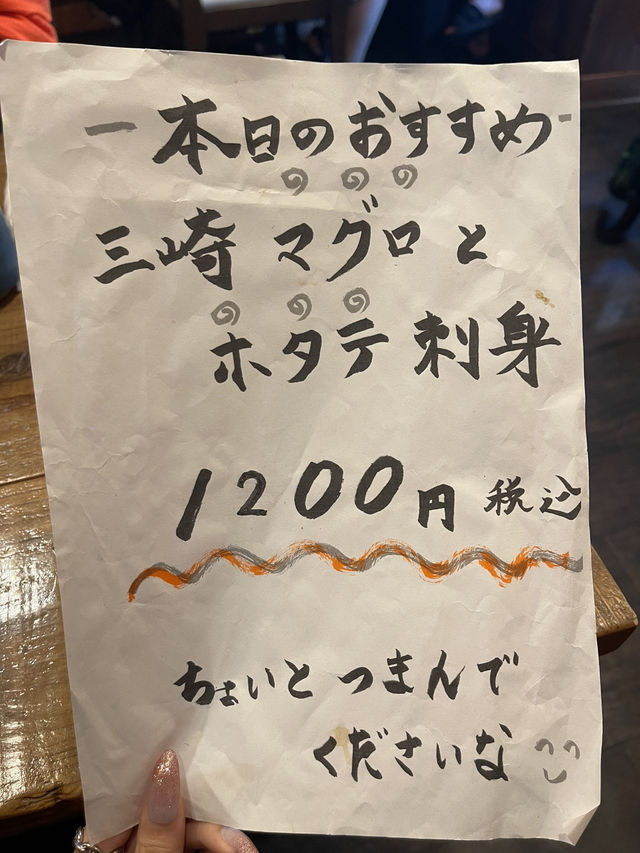 -本日のおすすめ-
三崎マグロと
ホタテ刺身
1200円 税込
ちょいとつまんで
くださいな